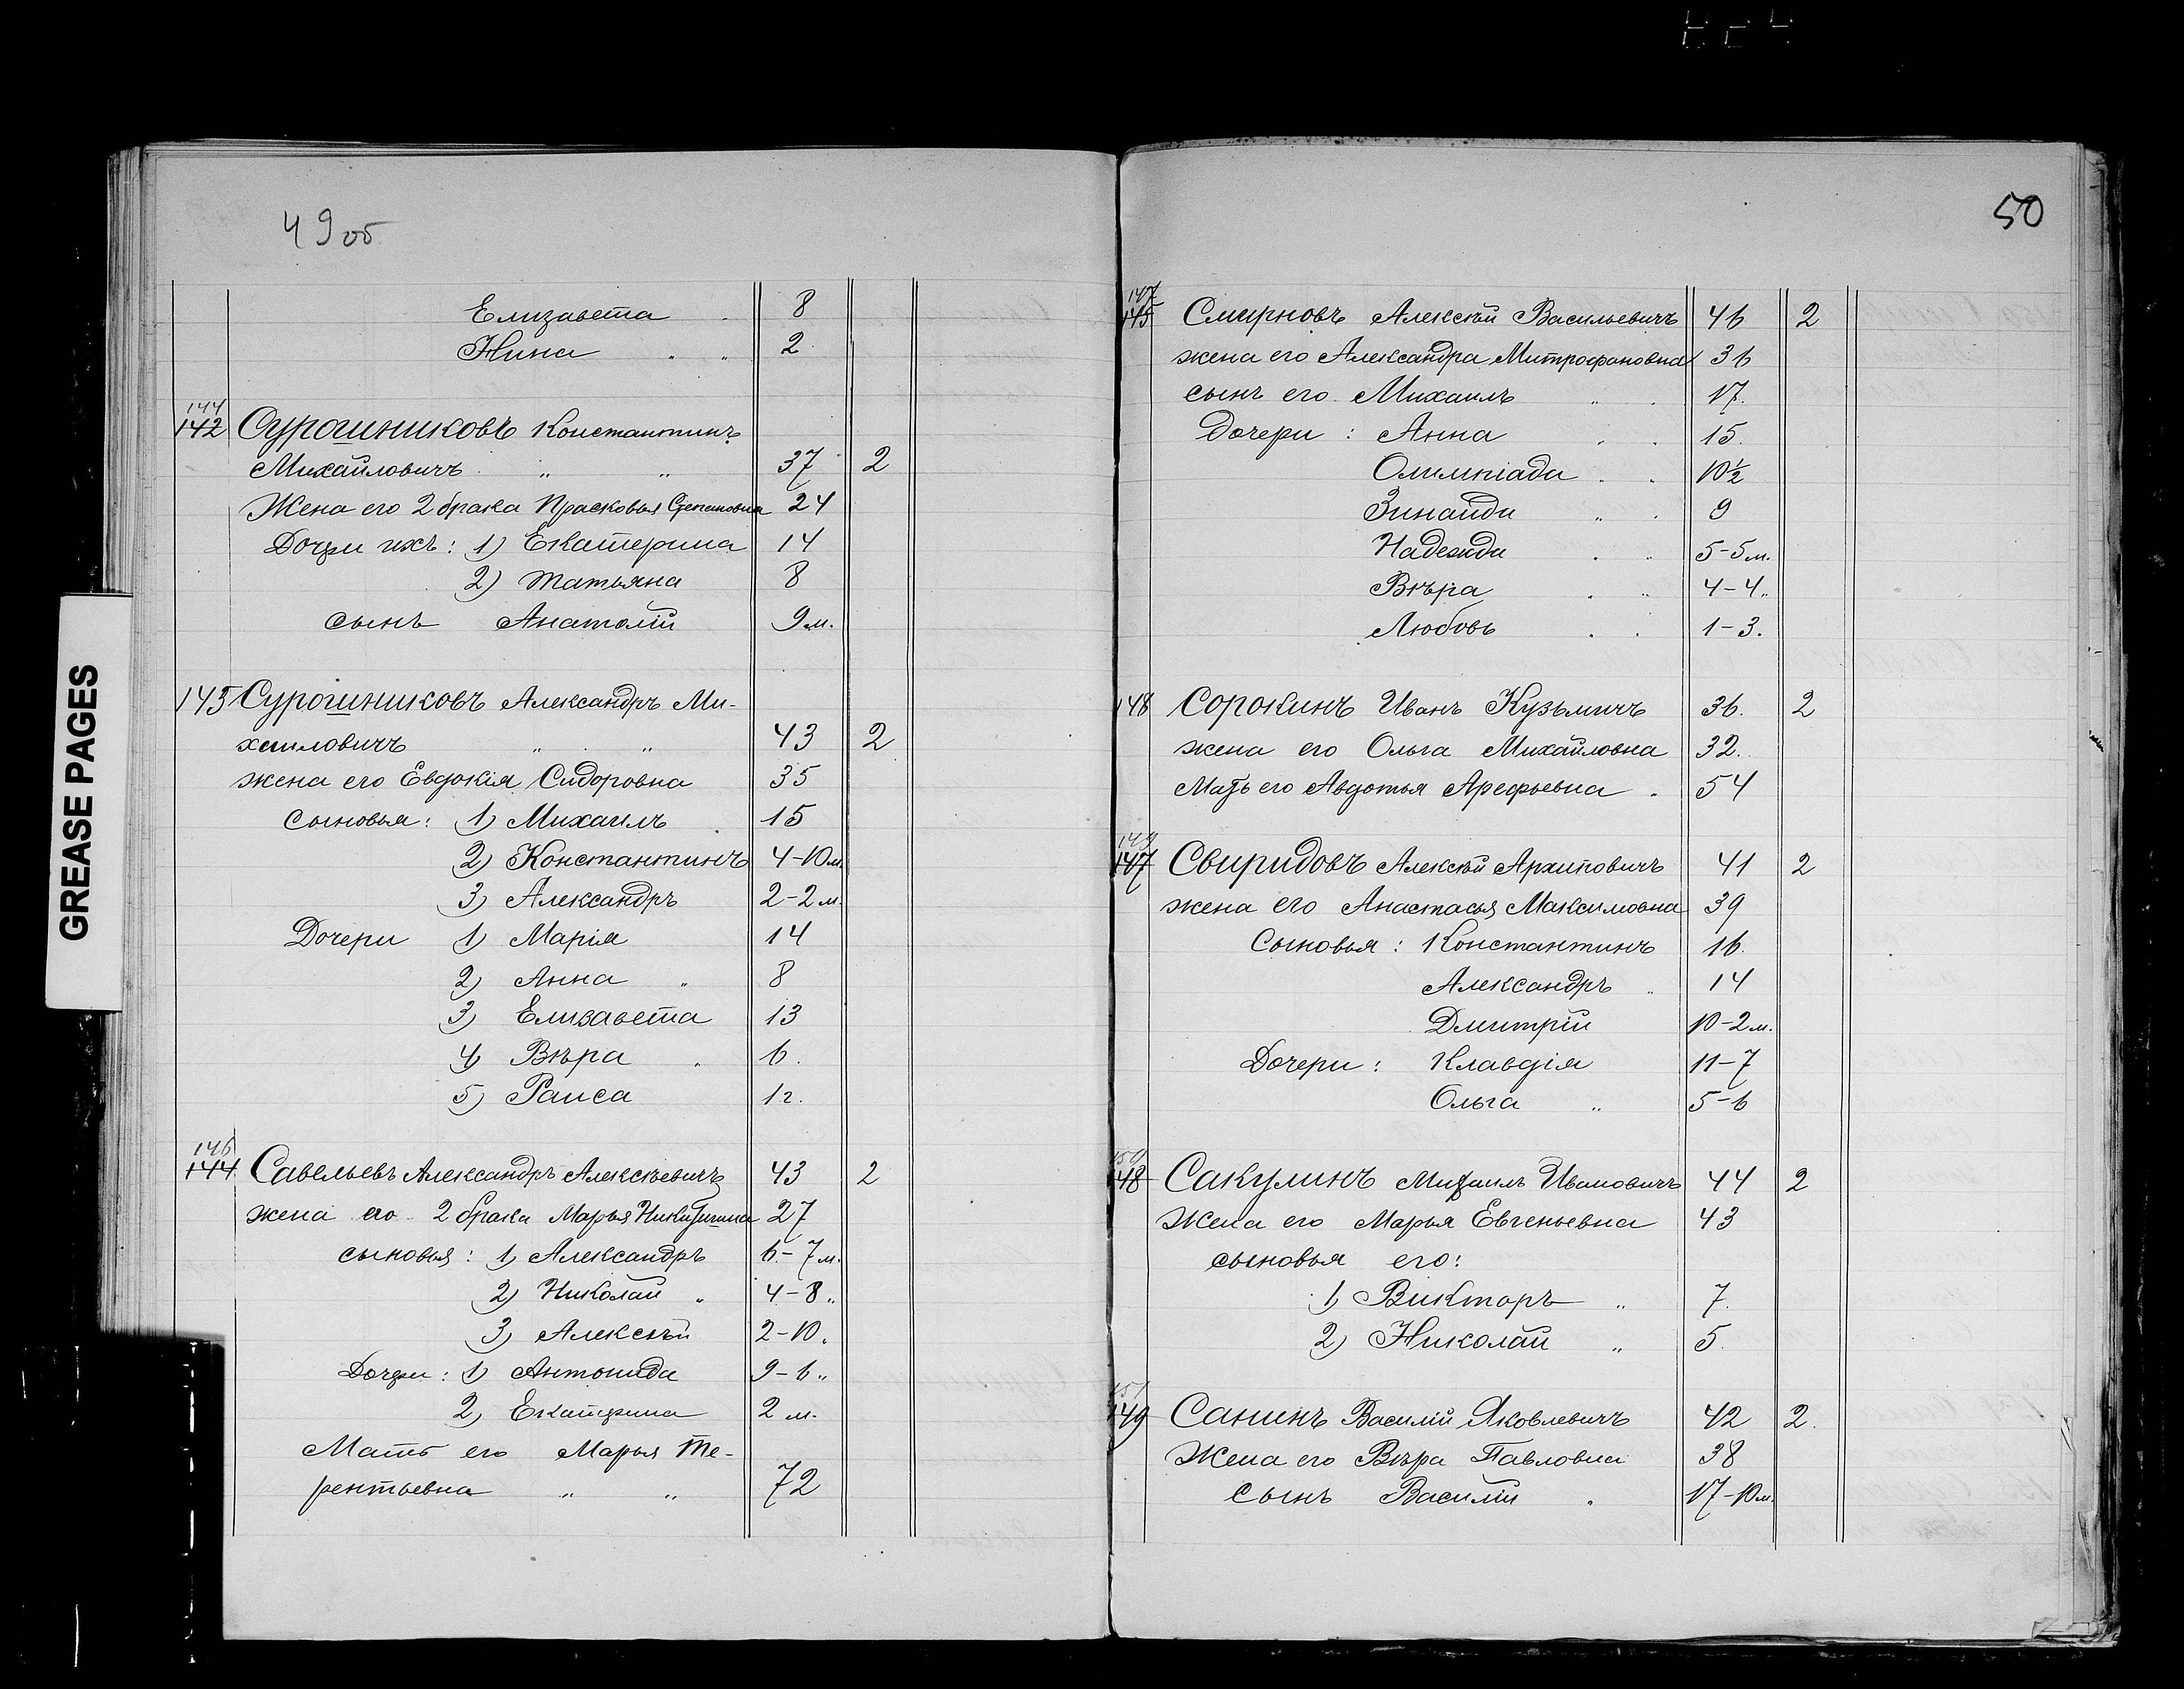 49об
Елизавета 8
Нина " " 2
144
142 Сурошниковъ Константинъ
Михайловичъ " " 37 2
Жена его 2 брака Прасковья Степановна 24
Дочери ихъ: 1) Екатерина 14
2) Татьяна 8
сынъ Анатолій 9 м.
145 Сурошниковъ Александръ Ми-
хаиловичъ " " 43 2
жена его Евдокія Сидоровна 35
Сыновья: 1) Михаилъ 15
2) Константинъ 4-10 м.
3) Александръ 2-2 м.
Дочери 1) Марія 14
2) Анна " 8
3) Елизавета 13
4) Вѣра " 6.
5) Раиса 1 г.
146
144 Савельевъ Александръ Алексѣевичъ 43 2
жена его 2 брака Марья Никитична 27
сыновья: 1) Александръ 6-7 м.
2) Николай " 4-8 "
3) Алексѣй 2-10 "
Дочери: 1) Антонида 9-6 "
2) Екатерина 2 м.
Мать его Марья Те-
рентьевна " " 72
50
147
145 Смирновъ Алексѣй Васильевичъ 46 2
жена его Александра Митрофановна 36
сынъ его Михаилъ " . 17.
Дочери: Анна " . 15.
Олимпіада . . 10½
Зинаида " . 9
Надежда . " 5-5 м.
Вѣра . " 4-4 "
Любовь . . 1-3.
148 Сорокинъ Иванъ Кузьмичъ 36. 2
жена его Ольга Михайловна 32.
Мать его Авдотья Арефьевна . 54
149
147 Свиридовъ Алексѣй Архиповичъ 41 2
жена его Анастасья Максимовна 39
Сыновья: Константинъ 16.
Александръ " 14
Дмитрій 10-2 м.
Дочери: Клавдія 11-7
Ольга " 5-6
150
148 Сакулинъ Михаилъ Ивановичъ 44 2
Жена его Марья Евгеньевна 43
сыновья его:
1) Викторъ " 7.
2) Николай " 5.
151
149 Санинъ Василій Яковлевичъ 42 2.
Жена его Вѣра Павловна 38
Сынъ Василій " 17-10 м.
GREASE PAGES